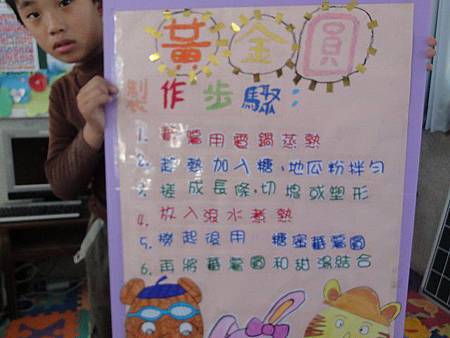 黃金圓
製作步驟：
1. 蕃薯用電鍋蒸熟
2. 趁熱加入糖、地瓜粉拌勻
3. 搓成長條，切塊或塑形
4. 放入滾水煮熟
5. 撈起後用 糖蜜蕃薯圓
6. 再將蕃薯圓和甜湯結合